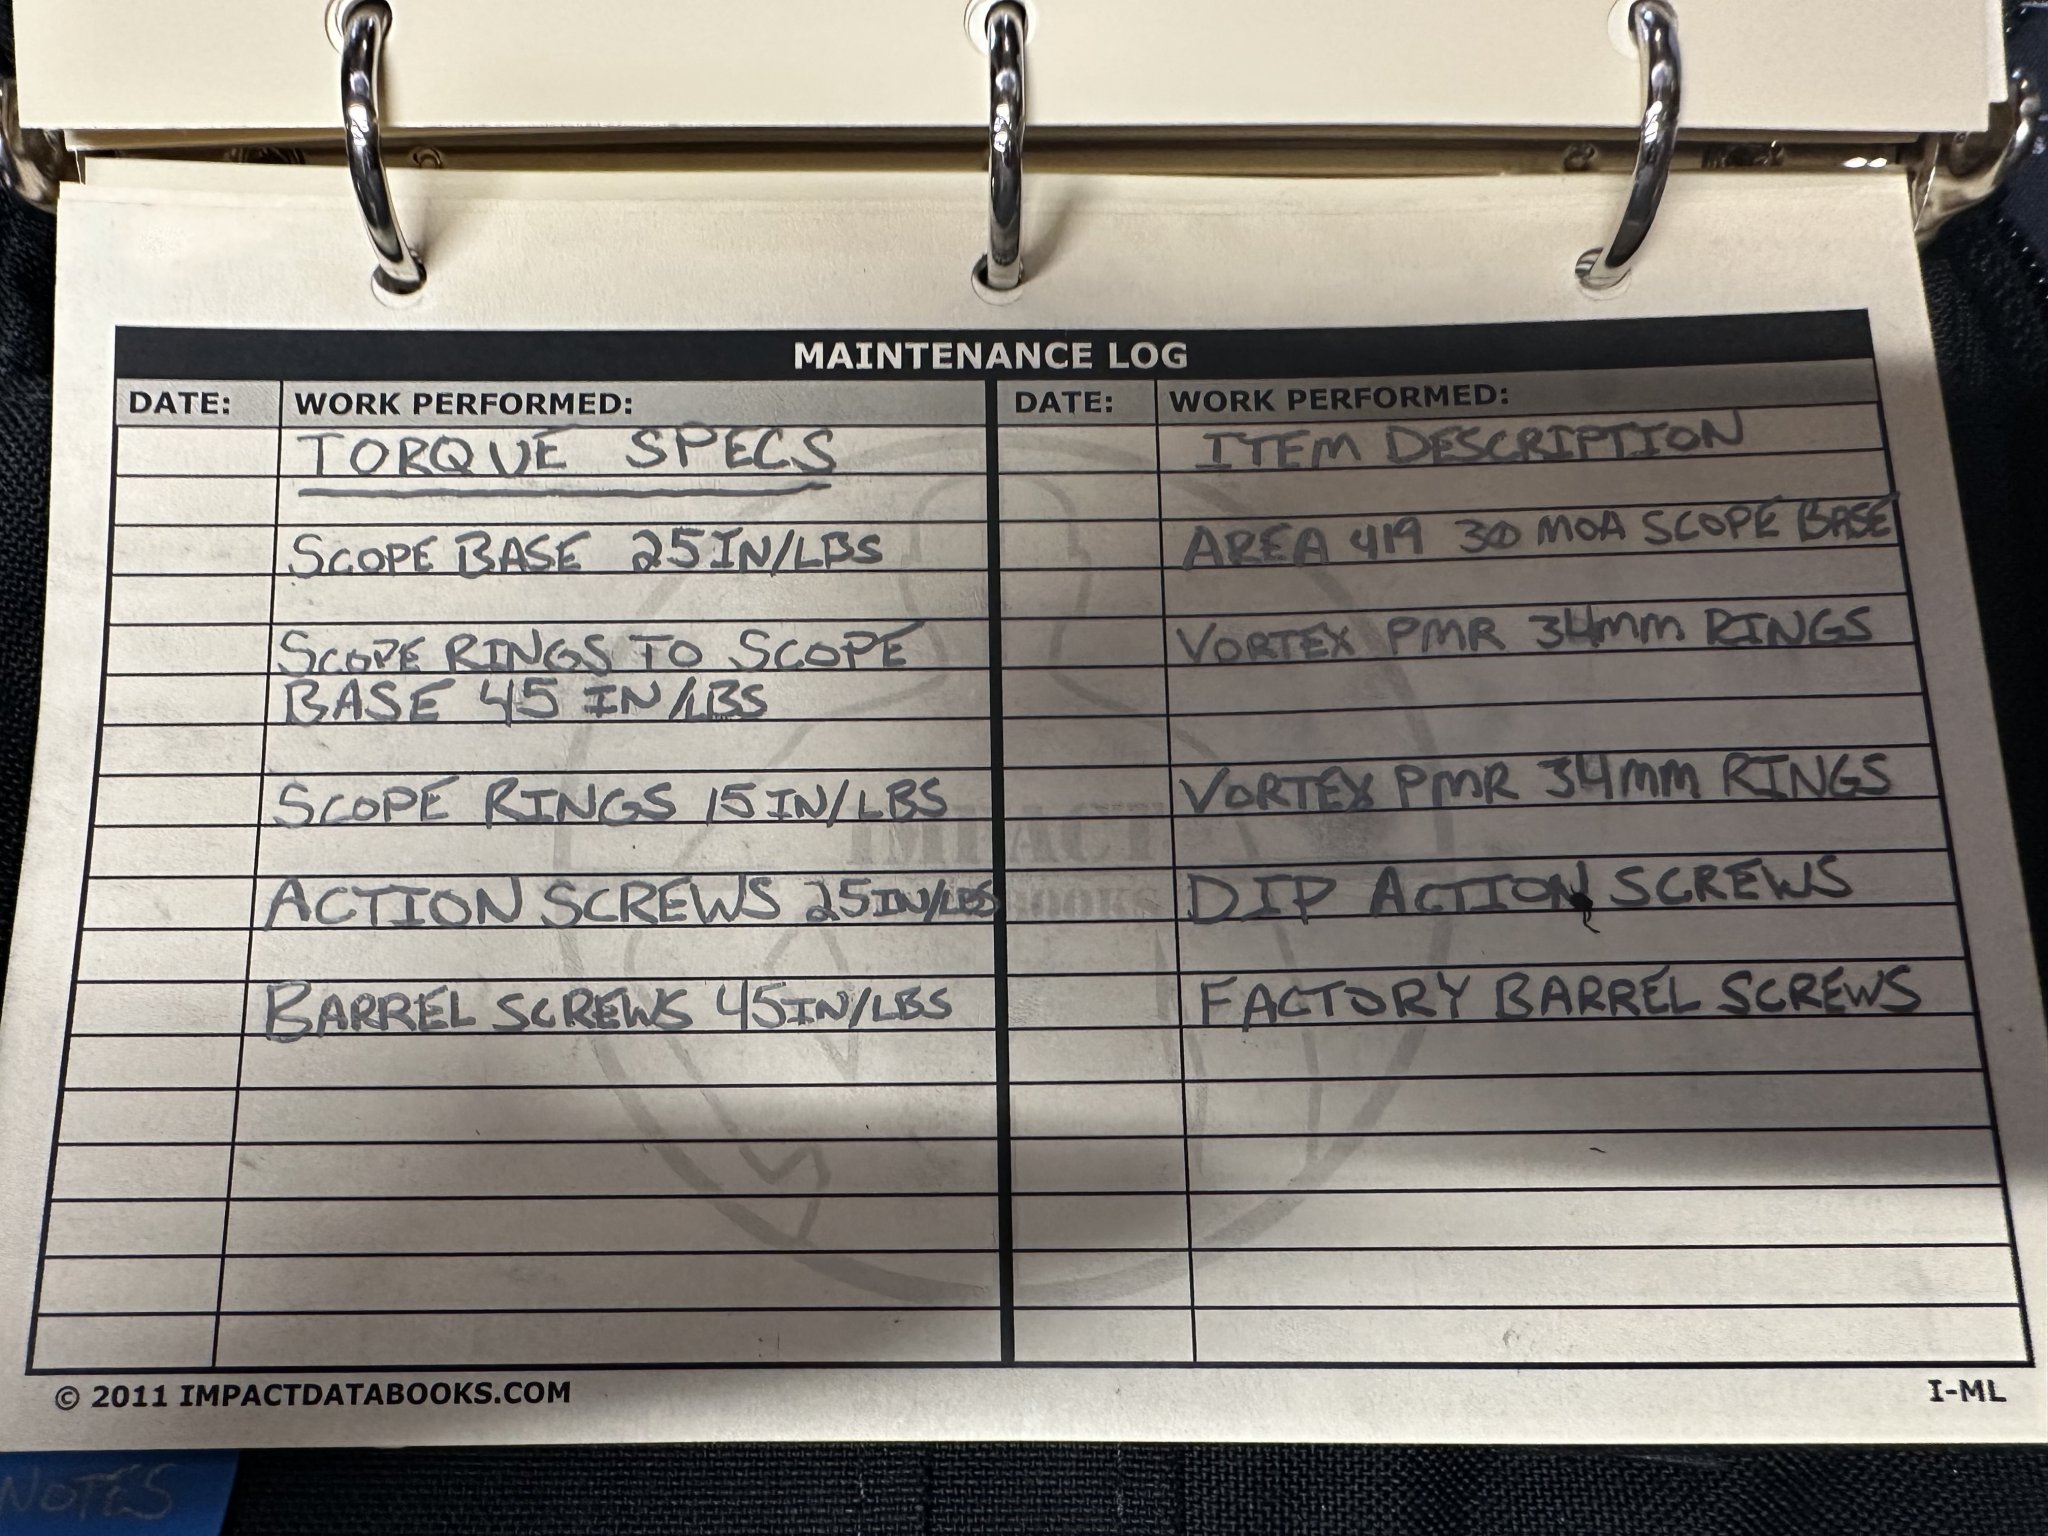 MAINTENANCE LOG
DATE: WORK PERFORMED: DATE: WORK PERFORMED:
TORQUE SPECS ITEM DESCRIPTION
SCOPE BASE 25IN/LBS AREA 419 30 MOA SCOPE BASE
SCOPE RINGS TO SCOPE VORTEX PMR 34mm RINGS
BASE 45 IN/LBS
SCOPE RINGS 15IN/LBS VORTEX PMR 34mm RINGS
IMPACT
ACTION SCREWS 25IN/LBS DIP ACTION SCREWS
BARREL SCREWS 45IN/LBS FACTORY BARREL SCREWS
© 2011 IMPACTDATABOOKS.COM I-ML
NOTES